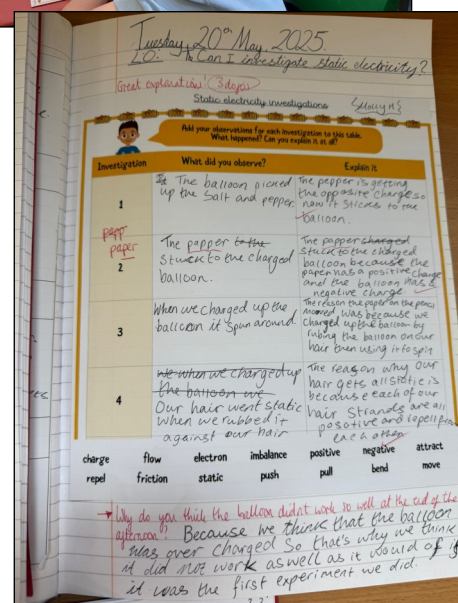 Tuesday 20th May 2025.
LO: Can I investigate static electricity?
Great explanation! 3 dojos
Static electricity investigations
Add your observations for each investigation to this table.
What happened? Can you explain it at all?
Investigation What did you observe? Explain it
1
The balloon picked
up the salt and pepper
The pepper is getting
the opposite charge so
now it sticks to the
balloon.
papp
paper
2
The papper to the
stuck to the charged
balloon.
The paper charged
stuck to the charged
balloon because the
paper has a positive charge
and the balloon has a
negative charge
3
When we charged up the
balloon it spun around.
The reason the paper on the pencil
moved was because we
charged up the balloon by
rubing the balloon on our
hair then using it to spin
4
we when we charged up
the balloon we
Our hair went static
when we rubbed it
against our hair
The reason why our
hair gets all static is
because each of our
hair strands are all
posative and repell from
each other
charge flow electron imbalance positive negative attract
repel friction static push pull bend move
Why do you think the balloon didnt work so well at the end of the
afternoon? Because we think that the balloon
was over charged so that's why we think
it did not work aswell as it would of if
it was the first experiment we did.